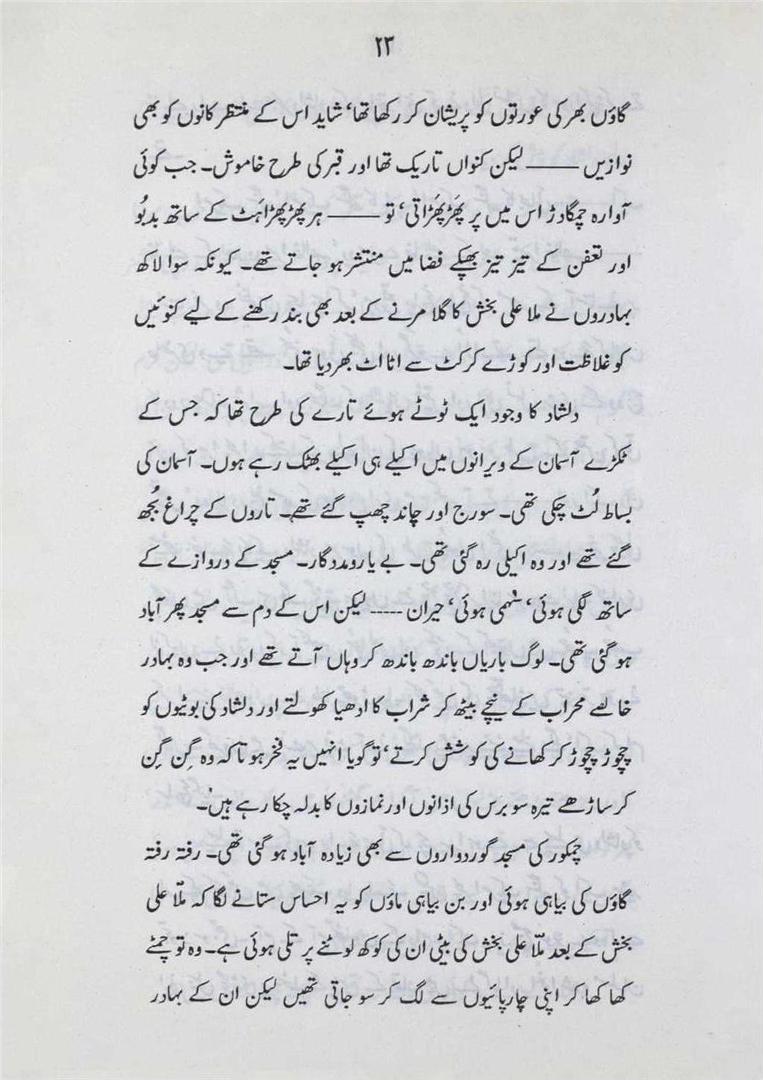 ۲۳
گاؤں بھر کی عورتوں کو پریشان کر رکھا تھا، شاید اس کے منتظر کانوں کو بھی
نوازیں ——— لیکن کنواں تاریک تھا اور قبر کی طرح خاموش۔ جب کوئی
آوارہ چمگادڑ اس میں پر پھڑپھڑاتی، تو ——— ہر پھڑپھڑاہٹ کے ساتھ بدبُو
اور تعفن کے تیز تیز بھپکے فضا میں منتشر ہو جاتے تھے۔ کیونکہ سوا لاکھ
بہادروں نے ملا علی بخش کا گلا مرنے کے بعد بھی بند رکھنے کے لیے کنوئیں
کو غلاظت اور کوڑے کرکٹ سے اٹا اٹ بھر دیا تھا۔
دلشاد کا وجود ایک ٹوٹے ہوئے تارے کی طرح تھا کہ جس کے
ٹکڑے آسمان کے ویرانوں میں اکیلے ہی اکیلے بھٹک رہے ہوں۔ آسمان کی
بساط لُٹ چکی تھی۔ سورج اور چاند چھپ گئے تھے۔ تاروں کے چراغ بُجھ
گئے تھے اور وہ اکیلی رہ گئی تھی۔ بے یارومددگار۔ مسجد کے دروازے کے
ساتھ لگی ہوئی، سَہمی ہوئی، حیران ---- لیکن اس کے دم سے مسجد پھر آباد
ہو گئی تھی۔ لوگ باریاں باندھ باندھ کر وہاں آتے تھے اور جب وہ بہادر
خالصے محراب کے نیچے بیٹھ کر شراب کا ادھیا کھولتے اور دلشاد کی بوٹیوں کو
چچوڑ چچوڑ کر کھانے کی کوشش کرتے، تو گویا انہیں یہ فخر ہو تا کہ وہ گِن گِن
کر ساڑھے تیرہ سو برس کی اذانوں اور نمازوں کا بدلہ چکا رہے ہیں۔
چمکور کی مسجد گوردواروں سے بھی زیادہ آباد ہو گئی تھی۔ رفتہ رفتہ
گاؤں کی بیاہی ہوئی اور بن بیاہی ماؤں کو یہ احساس ستانے لگا کہ ملّا علی
بخش کے بعد ملّا علی بخش کی بیٹی ان کی کوکھ لوٹنے پر تلی ہوئی ہے۔ وہ تو چمٹے
کھا کھا کر اپنی چارپائیوں سے لگ کر سو جاتی تھیں لیکن ان کے بہادر